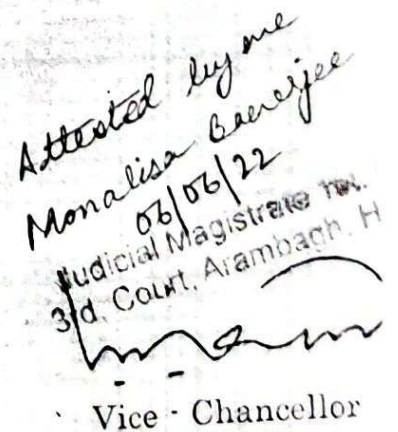 Attested by me
Monalisa Banerjee
06/06/22
Judicial Magistrate
3rd. Court, Arambagh, H
Vice - Chancellor